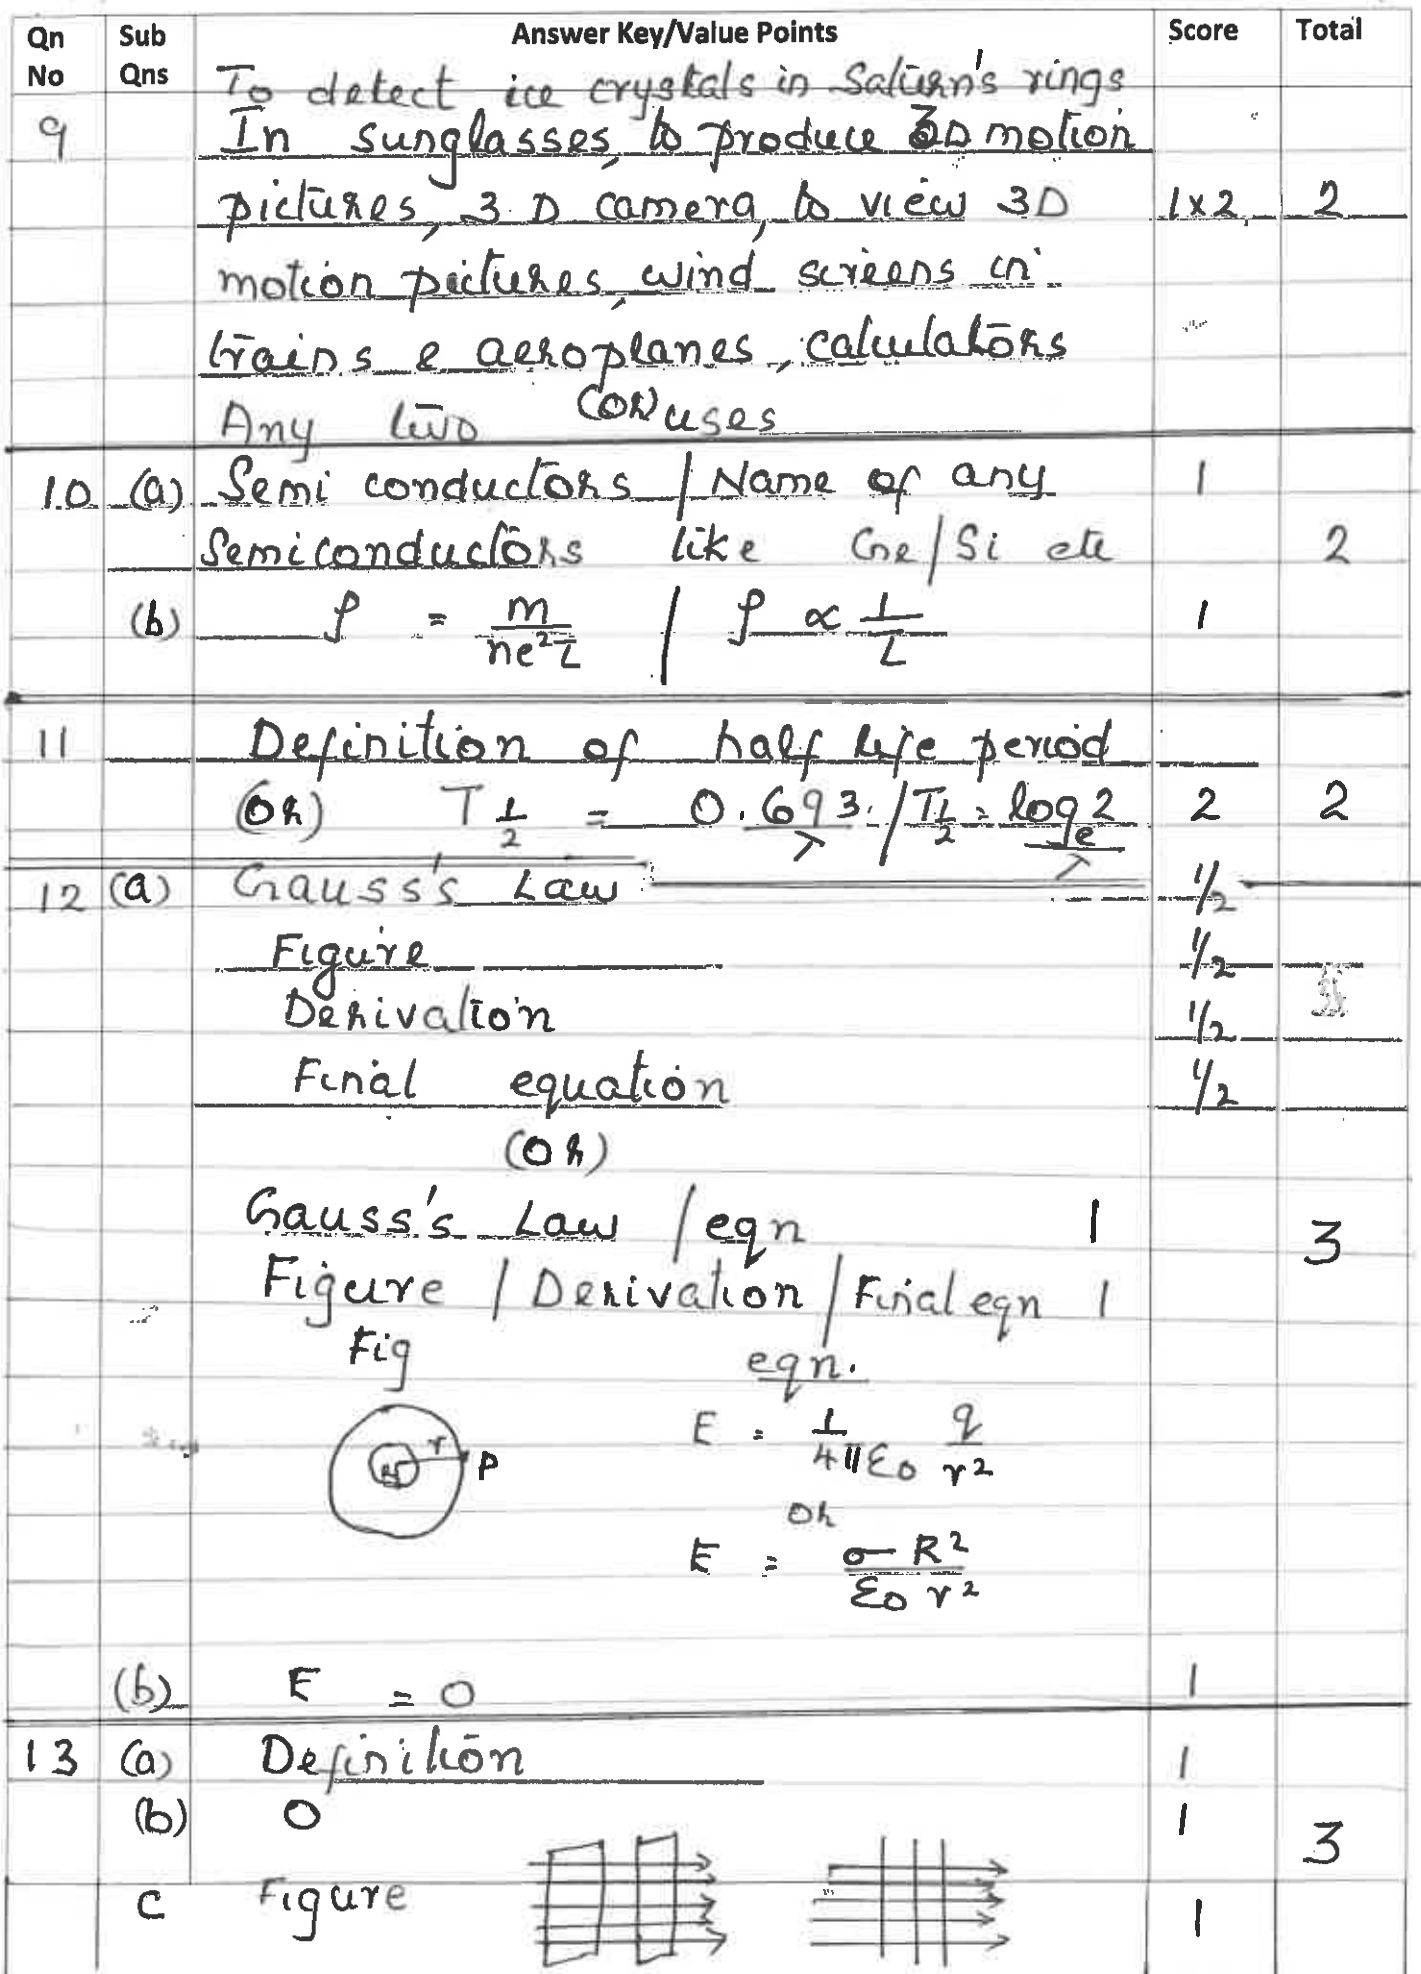 Qn No Sub Qns Answer Key/Value Points Score Total
To detect ice crystals in Saturn's rings
9 In sunglasses, to produce 3D motion
pictures, 3 D camera, to view 3D 1x2 2
motion pictures, wind screens in
trains & aeroplanes, calculators
Any two uses
10 (a) Semi conductors / Name of any 1
Semiconductors like Ge/Si etc 2
(b) ρ = m/ne²τ / ρ ∝ 1/τ 1
11 Definition of half life period
(Or) T½ = 0.693/λ / T½ = logₑ2/λ 2 2
12 (a) Gauss's Law ½
Figure ½
Derivation ½
Final equation ½
(Or)
Gauss's Law / eqn 1 3
Figure / Derivation / Final eqn 1
Fig eqn.
r P E = 1/4πε₀ q/r²
Or
E = σR²/ε₀r²
(b) E = 0 1
13 (a) Definition 1
(b) 0 1 3
c Figure 1